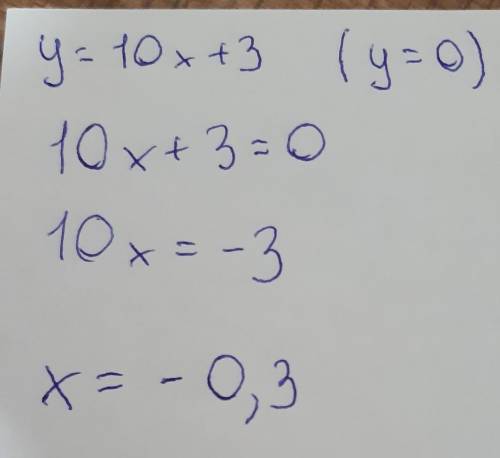 y = 10x + 3 (y = 0)
10x + 3 = 0
10x = -3
x = -0,3